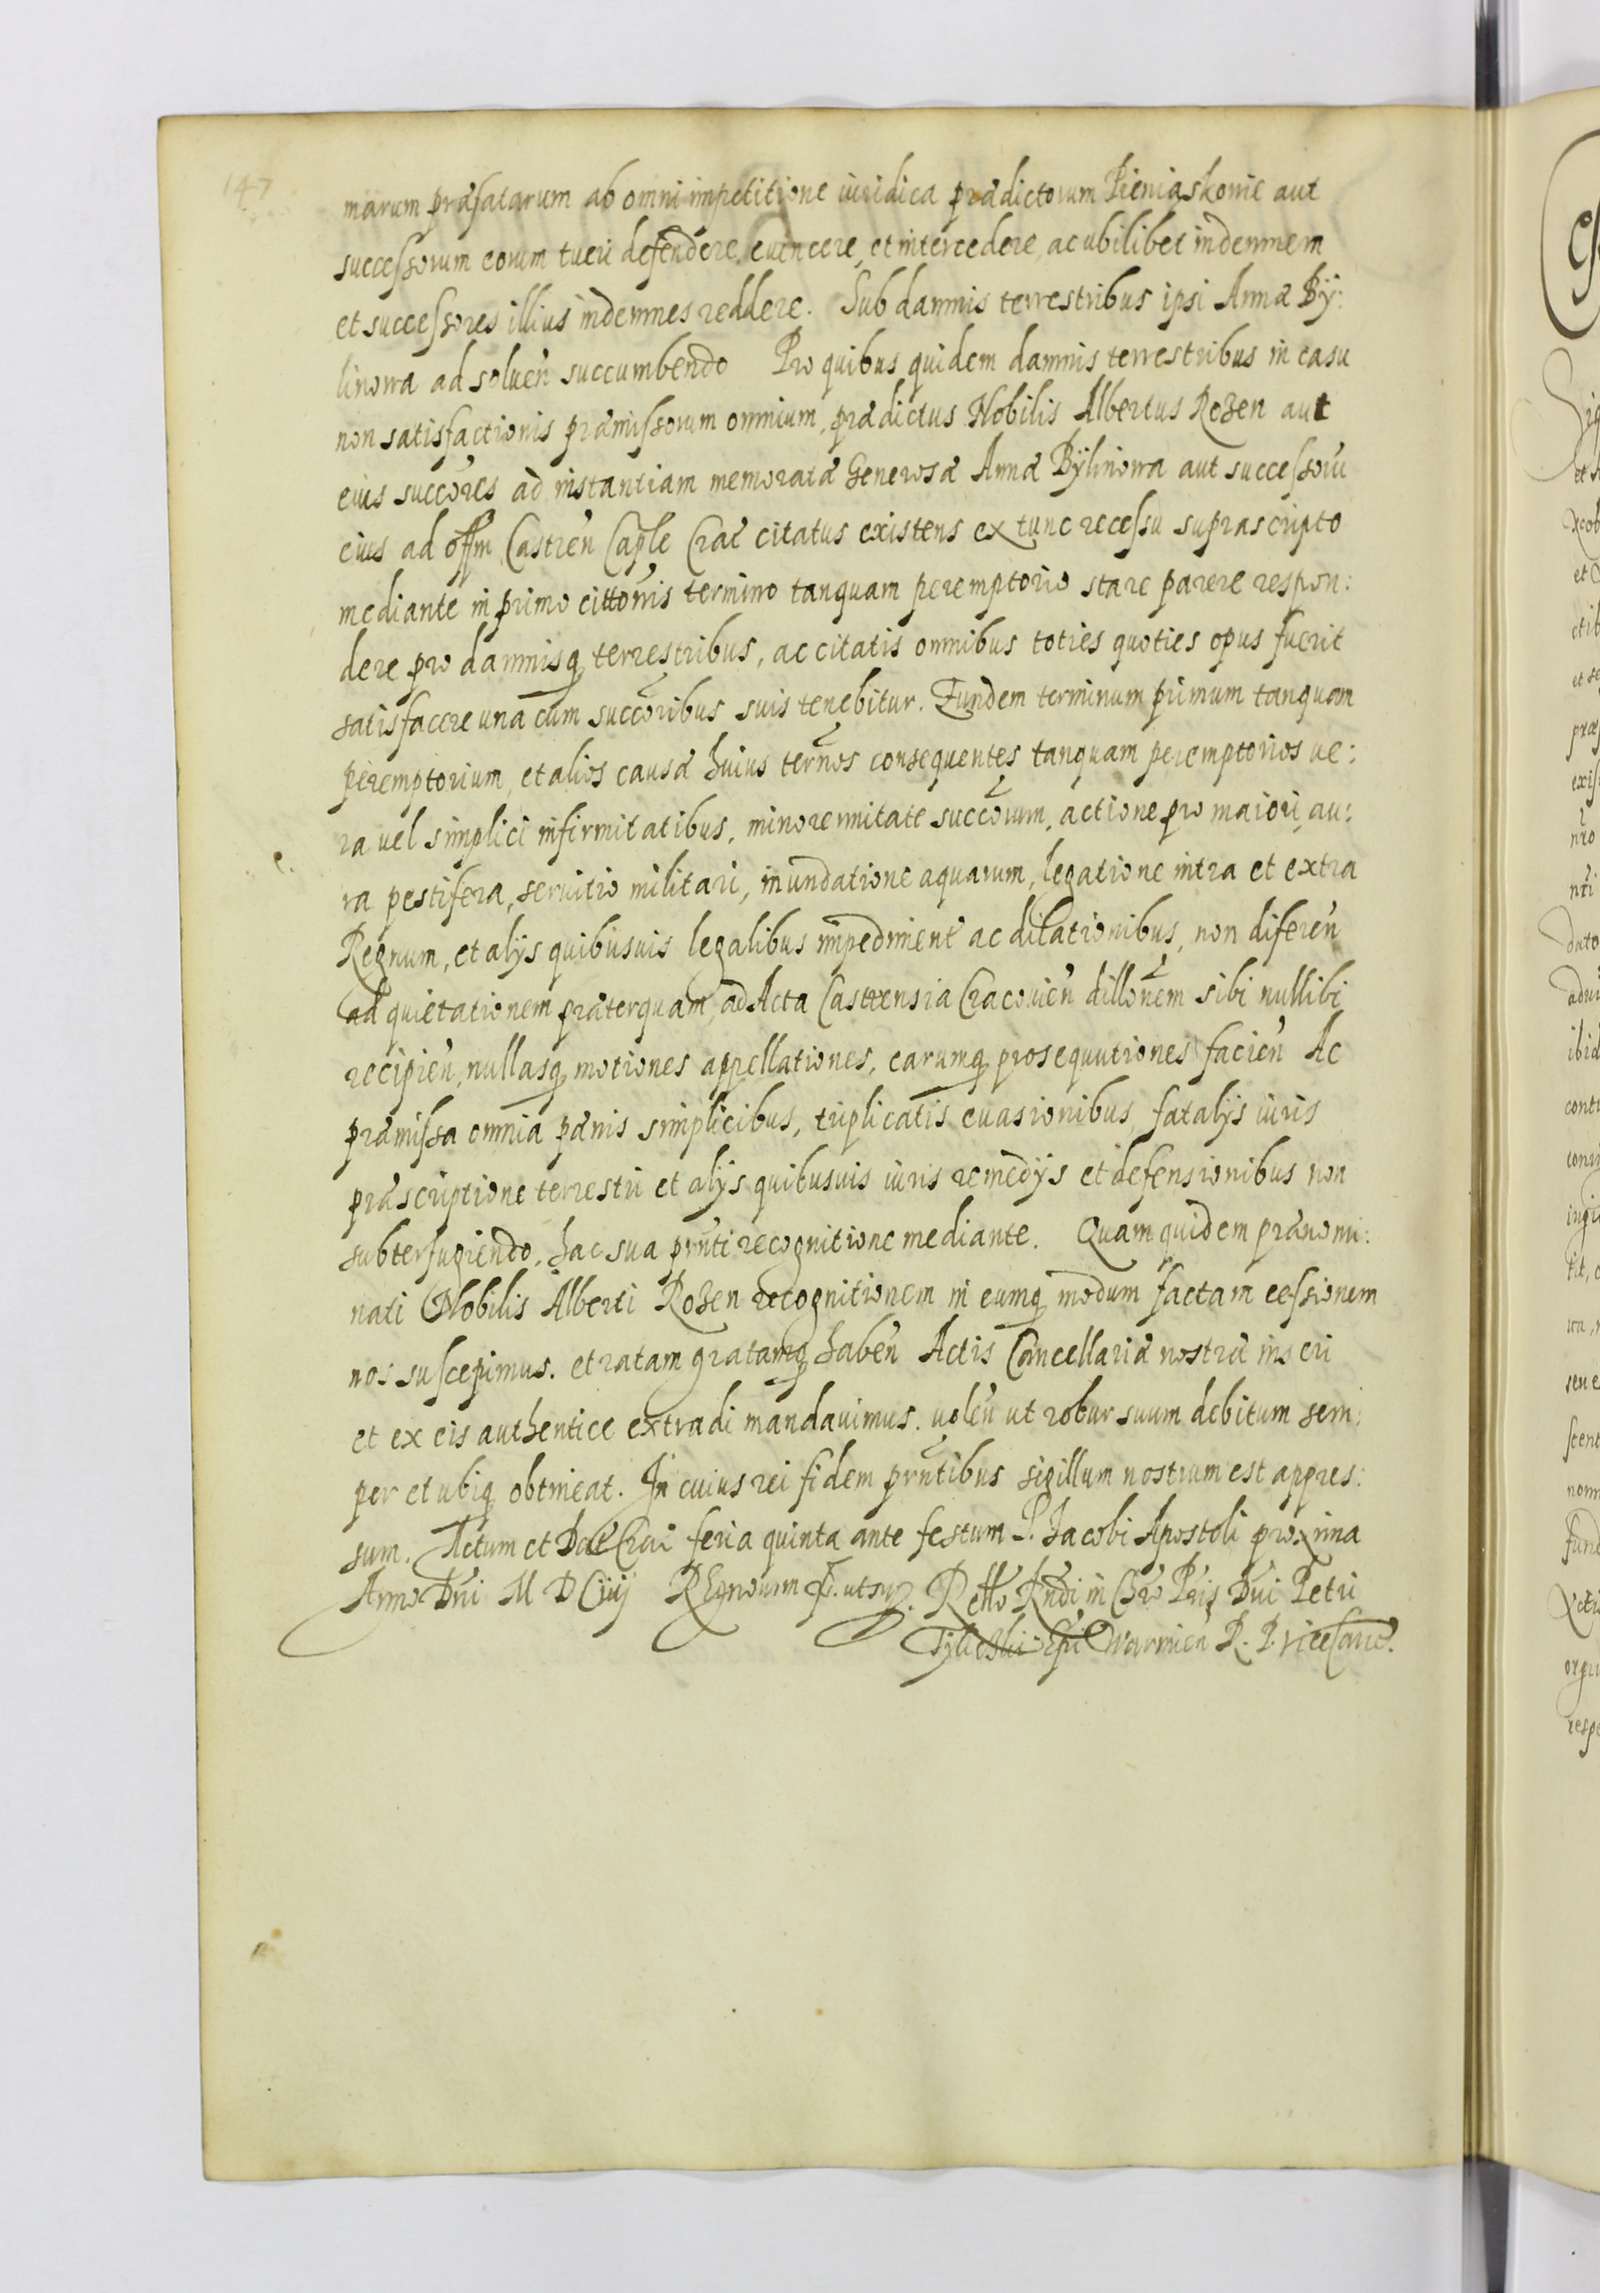 147
marum præfatarum ab omni impetitione iuridica prædictorum Pieniaskonie aut
successorum eorum tueri defendere, euincere, et intercedere, ac ubilibet indemnem
et successores illius indemnes reddere. Sub damnis terrestribus ipsi Annæ By:
linowa ad soluen̄ succumbendo Pro quibus quidem damnis terrestribus in casu
non satisfactionis præmissorum omnium, prædictus Nobilis Albertus Rozen aut
eius succōres ad instantiam memoratæ Generosæ Annæ Bylinowa aut successorū
eius ad offm Castren̄ Caple Crac̄ citatus existens ex tunc recessu suprascripto
mediante in primo cittōnis termino tanquam peremptorio stare parere respon:
dere pro damnisq terrestribus, ac citatis omnibus toties quoties opus fuerit
satisfacere una cum succōribus suis tenebitur. Eundem terminum primum tanquam
peremptorium, et alios causæ huius ternōs consequentes tanquam peremptorios ue:
ra uel simplici infirmitatibus, minorennitate succōrum, actione pro maiori, au:
ra pestifera, seruitio militari, inundatione aquarum, legatione intra et extra
Regnum, et alys quibusuis legalibus impediment̄ ac dilationibus, non diferen̄
ad quietationem præterquam, ad Acta Castrensia Cracouien̄ dillōnem sibi nullibi
recipien̄, nullasq motiones appellationes, earumq prosequutiones facien̄ Ac
præmissa omnia pænis simplicibus, triplicatis euasionibus, fatalys iuris
præscriptione terrestri et alys quibusuis iuris remedys et defensionibus non
subterfugiendo, hac sua prn̄ti recognitione mediante. Quam quidem prænomi:
nati Nobilis Alberti Rozen recognitionem in eumq modum factam cessionem
nos suscepimus. et ratam gratamq haben̄ Actis Cancellariæ nostræ inseri
et ex eis authentice extradi mandauimus. uolen̄ ut robur suum debitum sem:
per et ubiq obtineat. In cuius rei fidem prn̄tibus sigillum nostrum est appres:
sum. Actum et Dat̄ Crac̄ feria quinta ante festum S. Iacobi Apostoli proxima
Anno Dn̄i M D C iiij Regnorum utsu. Rttō Rndi in Chrō Pris Dn̄i Petri
Tyliczki Epi Warmien̄ R. P. viceCanc̄.